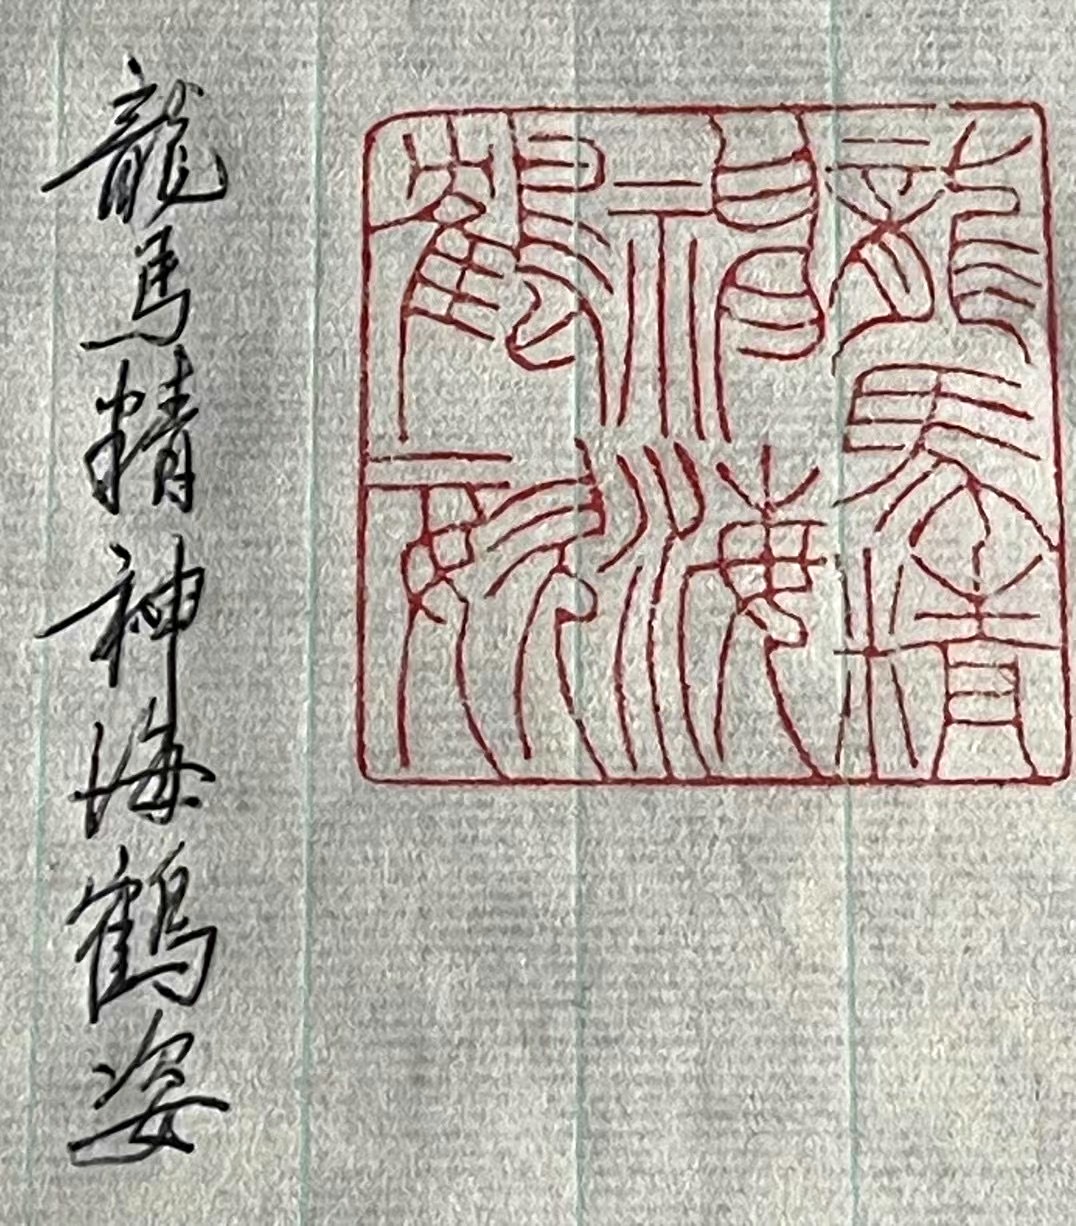 龍馬精
神海
鶴姿
龍馬精神海鶴姿